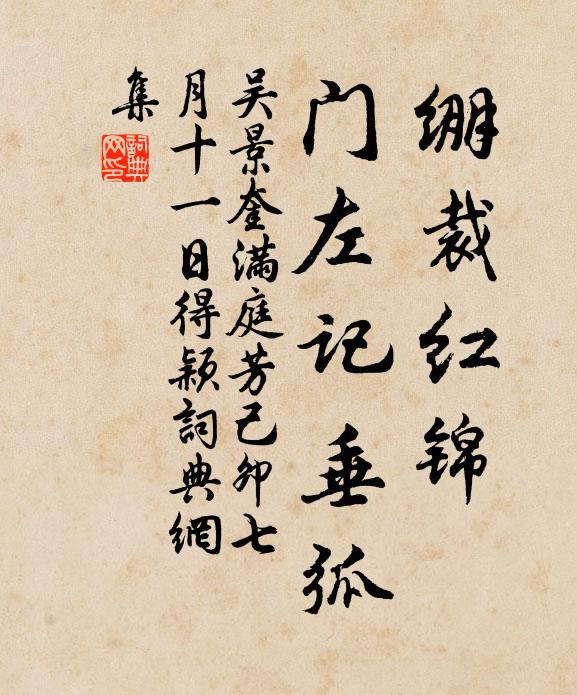 绷裁红锦
门左记垂弧
吴景奎满庭芳己卯七
月十一日得颖詞典網
集
詞典网印